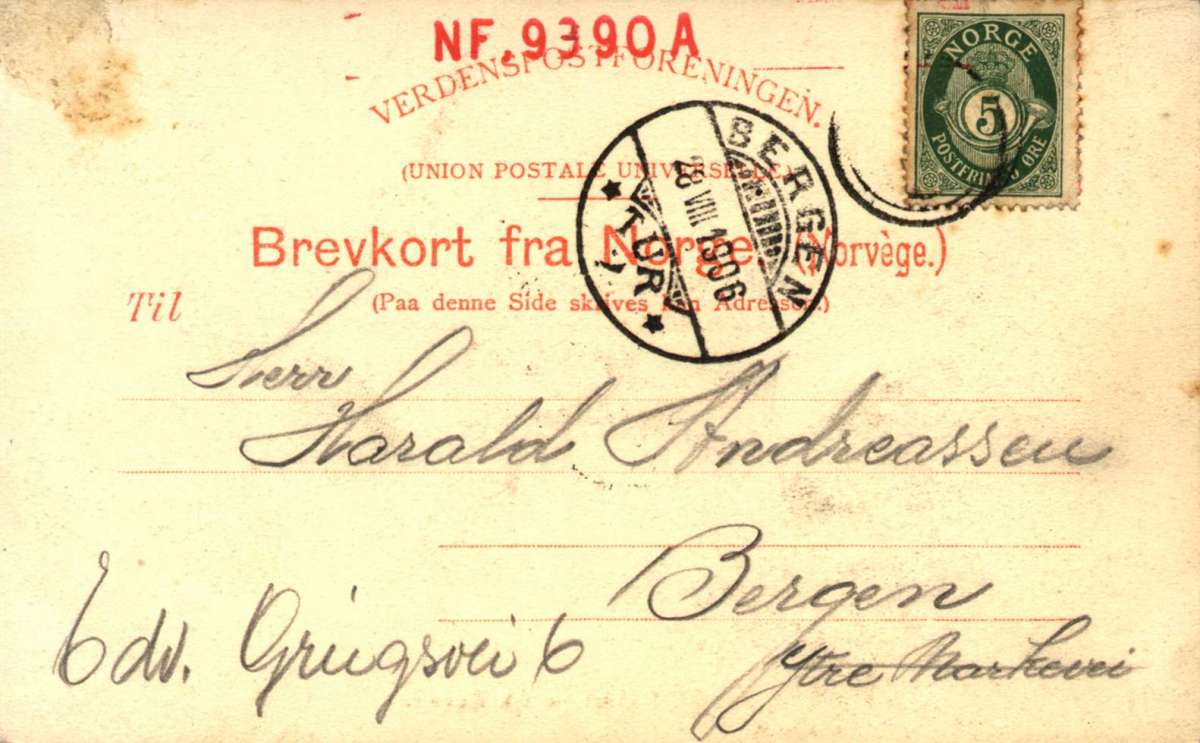 NF.9390A
VERDENSPOSTFORENINGEN.
(UNION POSTALE UNIVERSELLE)
NORGE
5
POSTFRIM. 5 ØRE
BERGEN
28 VIII 1906
TUR
Brevkort fra Norge. (Norvège.)
(Paa denne Side skrives kun Adressen.)
Til
Herr
Harald Andreassen
Bergen
Ytre Markevei
Edv. Griegsvei 6